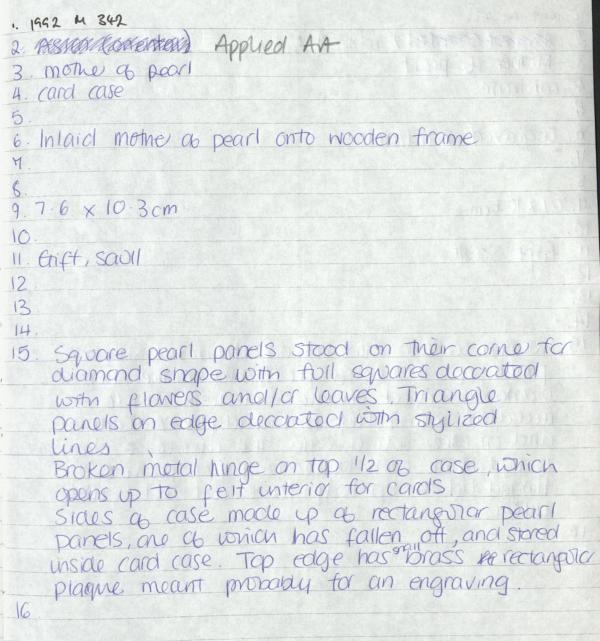 1. 1992 M 342
2. Applied Art
3. mother of pearl
4. card case
5.
6. Inlaid mother of pearl onto wooden frame
7.
8.
9. 7.6 x 10.3cm
10.
11. Gift,
12
13
14.
15. Square pearl panels stood on their corner for
diamond shape with full squares decorated
with flowers and/or leaves. Triangle
panels on edge decorated with stylized
lines
Broken metal hinge on top 1/2 of case, which
opens up to felt interior for cards.
Sides of case made up of rectangular pearl
panels, one of which has fallen off, and stored
inside card case. Top edge has small brass rectangular
plaque meant probably for an engraving.
16